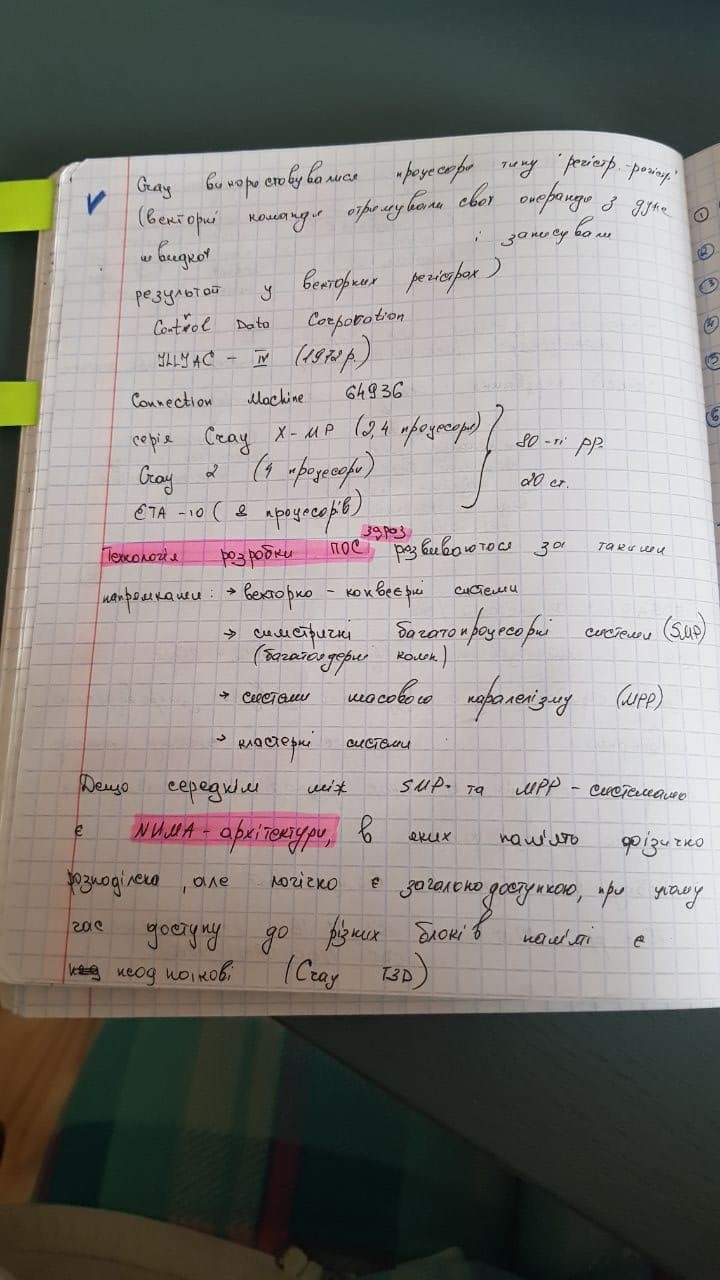 Cray використовувалися процесори типу "регістр-регістр"
(векторні команди отримували свої операнди з дуже
швидкої і записували
результат у векторних регістрах)
Control Data Corporation
ILLIAC - IV (1972р.)
Connection Machine 64936
серія Cray X-MP (2,4 процесори)
Cray 2 (4 процесори) 80-ті рр.
20 ст.
ETA-10 ( 8 процесорів)
зараз
Технологія розробки ПОС розвиваються за такими
напрямками: → векторно - конвеєрні системи
→ симетричні багатопроцесорні системи (SMP)
(багатоядерні комп)
→ системи масового паралелізму (MPP)
→ кластерні системи
Дещо середнім між SMP- та MPP - системами
є NUMA - архітектури, в яких пам'ять фізично
розподілена, але логічно є загальнодоступною, при цьому
час доступу до різних блоків пам'яті є
неоднаковi (Cray T3D)